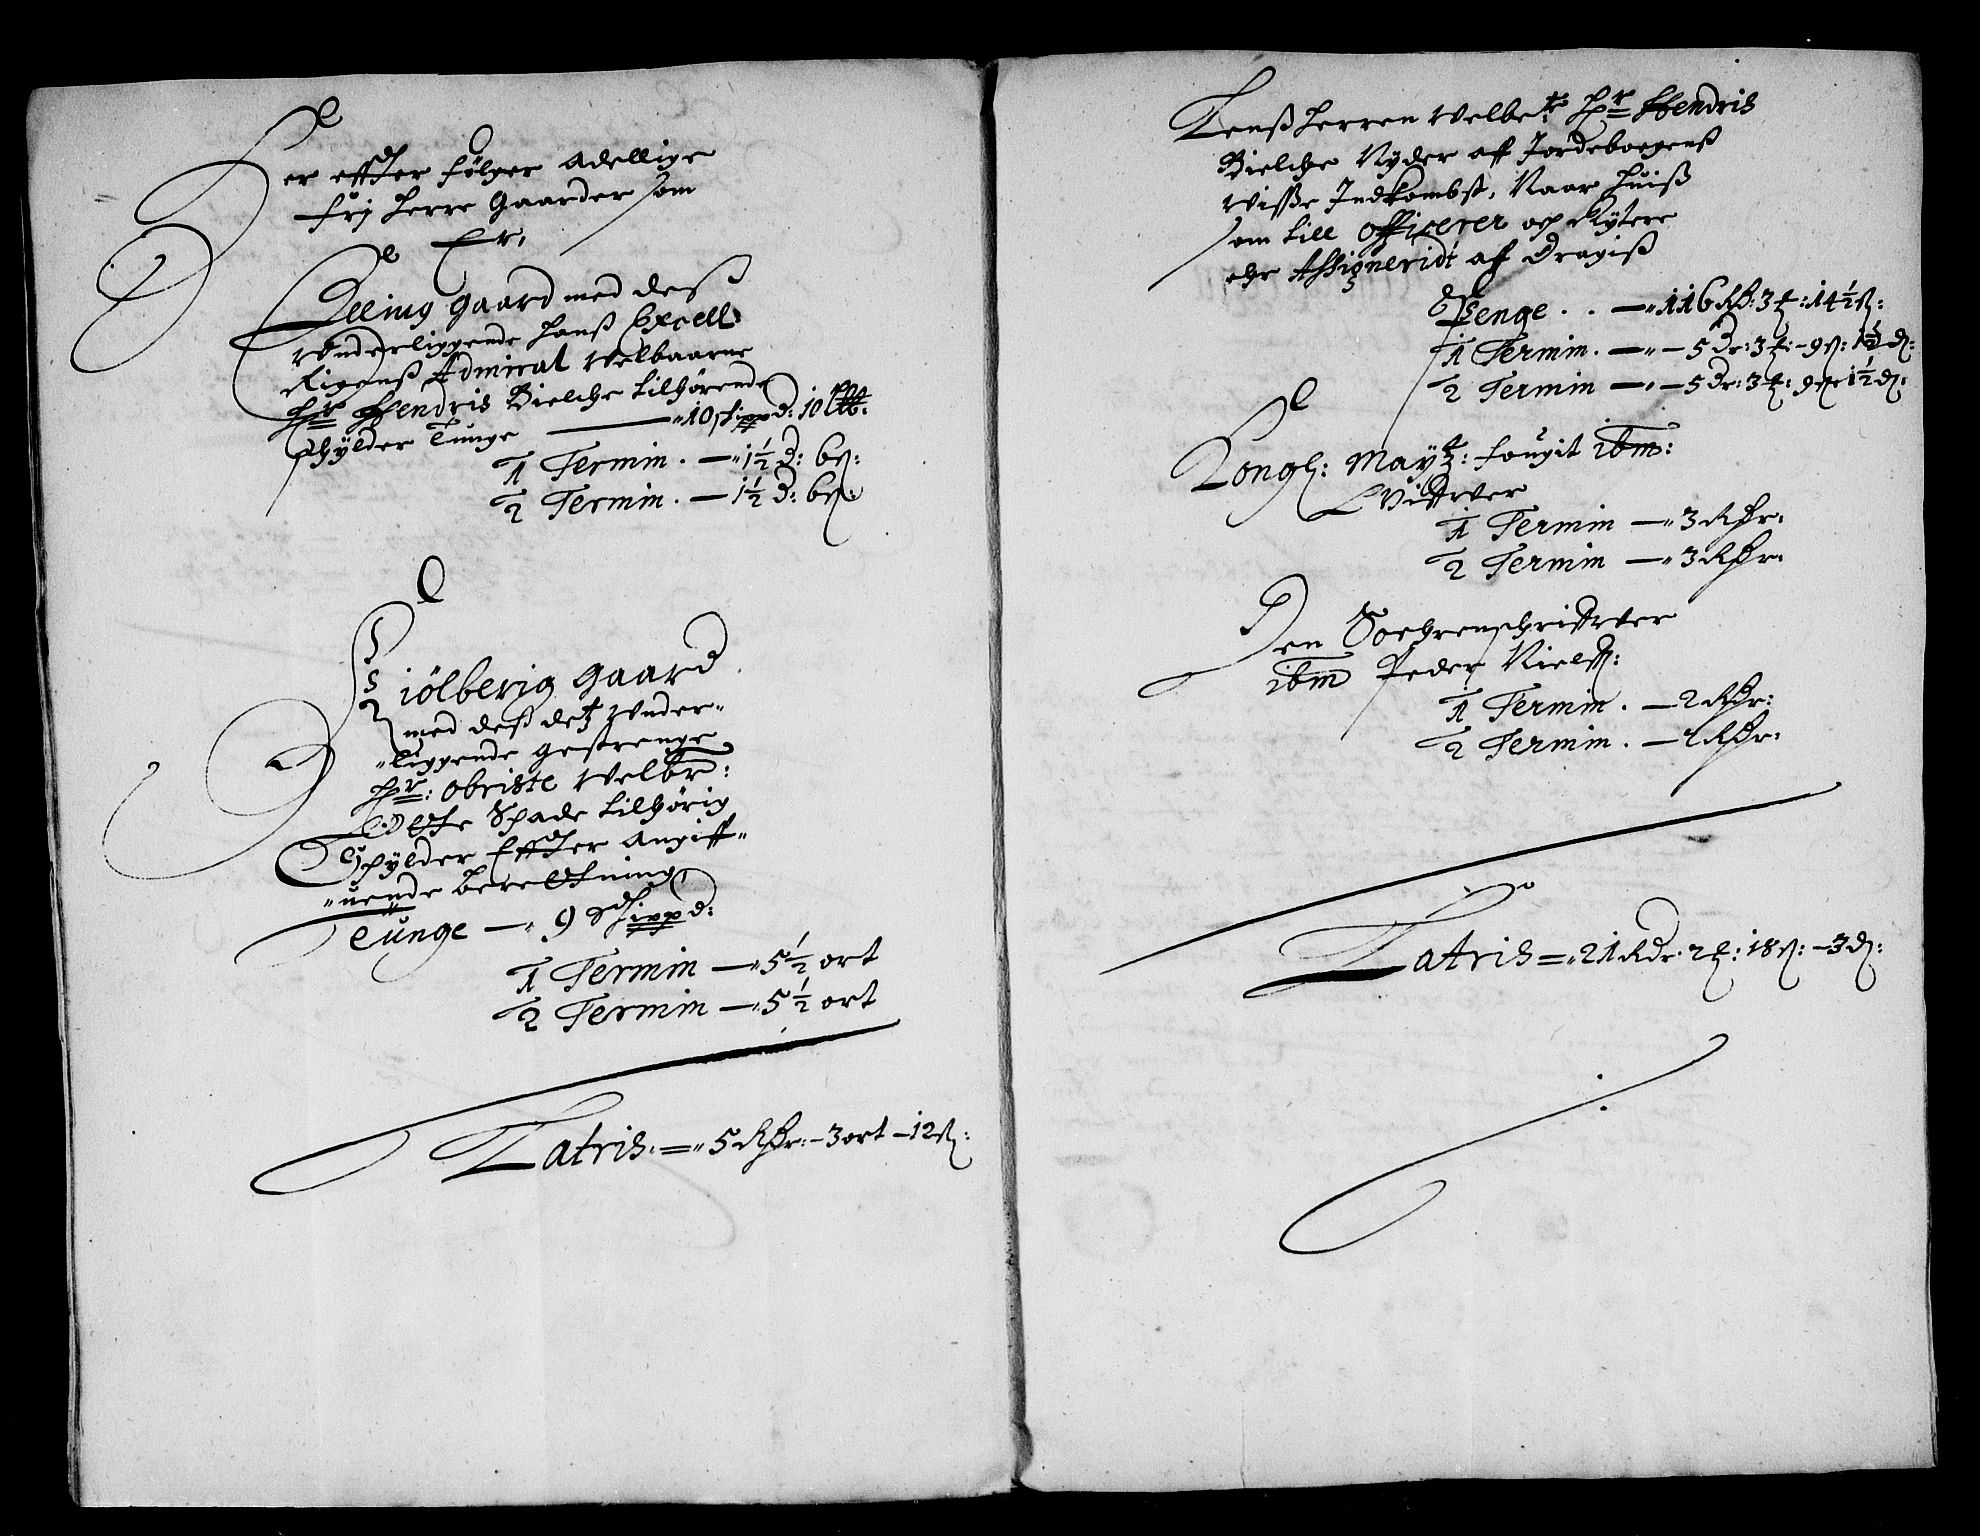 Her effter følger Adellige
frij herre Gaarder som
Er,
Elling gaard med deß
underliggende hanß Excell:
Rigenß Admiral Velbaarne
Hr Hendrik Bielche tilhørende
schylder Tunge — 10 schippd: 10 lb:
1 Termin . — 1½ d: 6 ß:
2 Termin . — 1½ d: 6 ß:
Kiølberig gaard
med deß det under-
liggende gestrenge
Hr: obriste Velbr:
Offe Spade tilhørig
Schylder Effter angiff-
uende beretning
Tunge — 9 Schippd:
1 Termin — 5½ ort
2 Termin — 5½ ort
Latris. = 5 Rdr: - 3 ort - 12 ß:
Lenß herren Velbe: Hr Hendrik
Bielche Nyder aff Jordeboegenß
visse Indkombst, Naar huiß
som till officerer og Rytere
ehr Assigneridt aff dragiß
Penge . . — 116 Rd: 3 : 14½ ß:
1 Termin . — 5 dr: 3 : 9 ß: 1½ d:
2 Termin — 5 dr: 3 : 9 ß: 1½ d:
Kongl: Maytz: fougit ibm:
1 Termin — 3 Rdr:
2 Termin — 3 Rdr:
Den Soehrenschriffver
ibm Peder Nielß:
1 Termin . — 2 Rdr:
2 Termin . — 2 Rdr:
Latris = 21 Rdr. 2 : 18 ß: - 3 d: